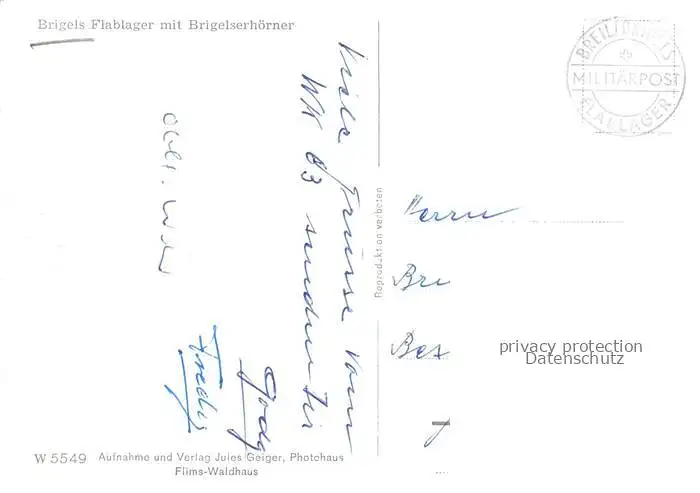 Brigels Flablager mit Brigelserhörner
BREIL/BRIGELS
MILITÄRPOST
FLABLAGER
Viele Grüsse vom
WK 63 senden Dir
Godg
Fredy
Reproduktion verboten
Herrn
Bri
Bex
privacy protection
Datenschutz
W 5549 Aufnahme und Verlag Jules Geiger, Photohaus
Flims-Waldhaus